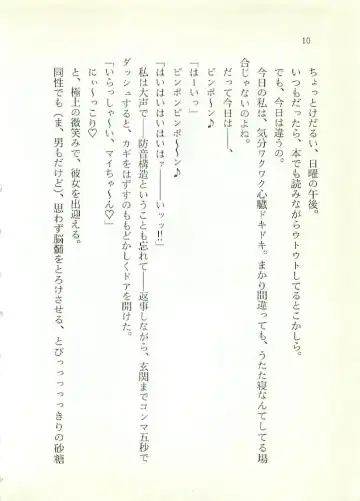 10
ちょっとけだるい、日曜の午後。
いつもだったら、本でも読みながらウトウトしてるとこかしら。
でも、今日は違うの。
今日の私は、気分ワクワク心臓ドキドキ。まかり間違っても、うたた寝なんてしてる場
合じゃないのよね。
だって今日は——、
ピンポ〜ン♪
「はーいっ」
ピンポンピンポ〜ン♪
「はいはいはいはいはァ——いッッ!!」
私は大声で——防音構造ということも忘れて——返事しながら、玄関までコンマ五秒で
ダッシュすると、カギをはずすのももどかしくドアを開けた。
「いらっしゃ〜い、マイちゃ〜ん♡」
にぃ〜っこり♡
と、極上の微笑みで、彼女を出迎える。
同性でも(ま、男もだけど)、思わず脳髄をとろけさせる、とびっっっっっきりの砂糖